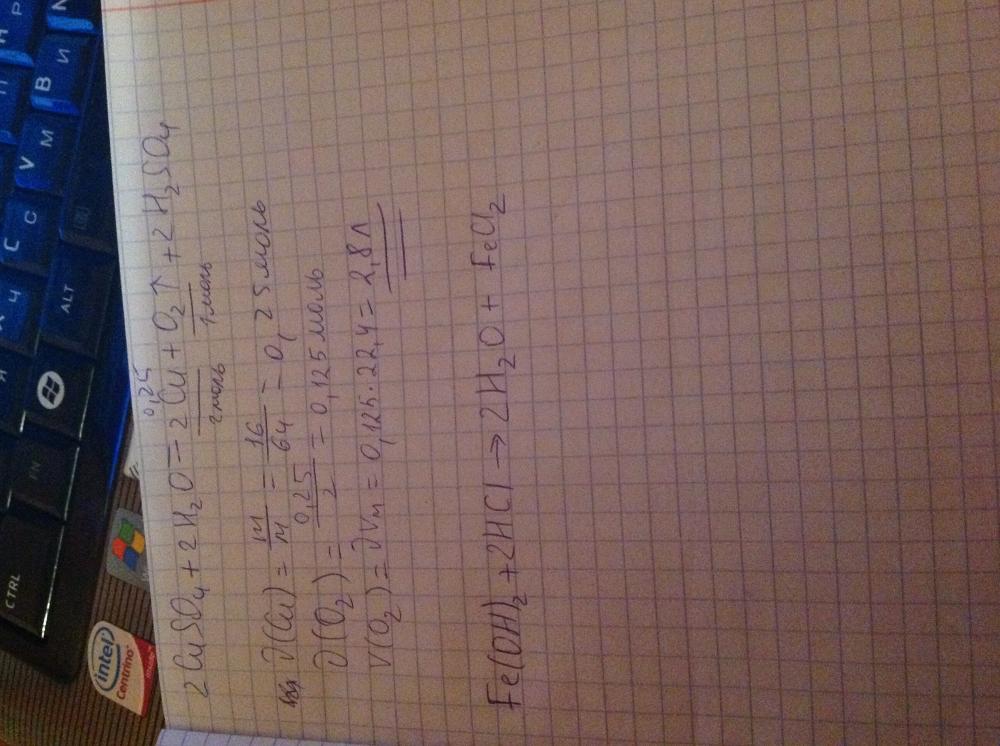 2CuSO₄ + 2H₂O = 2Cu + O₂↑ + 2H₂SO₄
0,25
2моль 1моль
∂(Cu) = m/M = 16/64 = 0,25 моль
∂(O₂) = 0,25/2 = 0,125 моль
V(O₂) = ∂Vм = 0,125·22,4 = 2,8 л
Fe(OH)₂ + 2HCl → 2H₂O + FeCl₂
CTRL
FN
ALT
Ч
С C
М V
И В
intel
Centrino